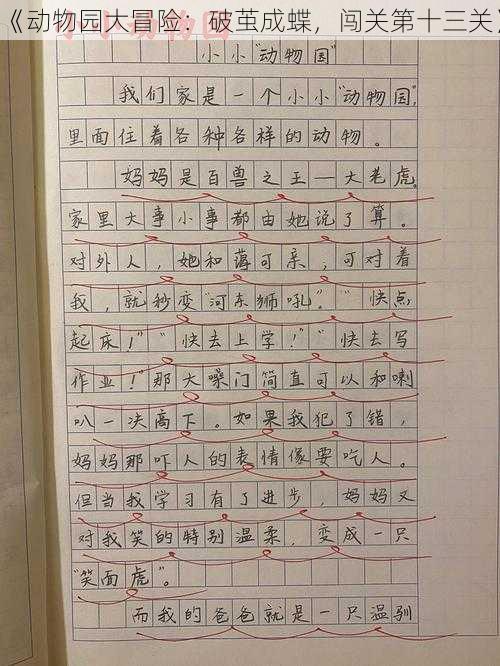 《动物园大冒险：破茧成蝶，闯关第十三关》
小小"动物园"
我们家是一个小小"动物园",
里面住着各种各样的动物。
妈妈是百兽之王—大老虎,
家里大事小事都由她说了算。
对外人，她和蔼可亲，可对着
我，就秒变"河东狮吼"。"快点,
起床！""快去上学！""快去写
作业！"那大嗓门简直可以和喇
叭一决高下。如果我犯了错，
妈妈那吓人的表情像要吃人。
但当我学习有了进步，妈妈又
对我笑的特别温柔，变成一只
"笑面虎"。
而我的爸爸就是一只温驯